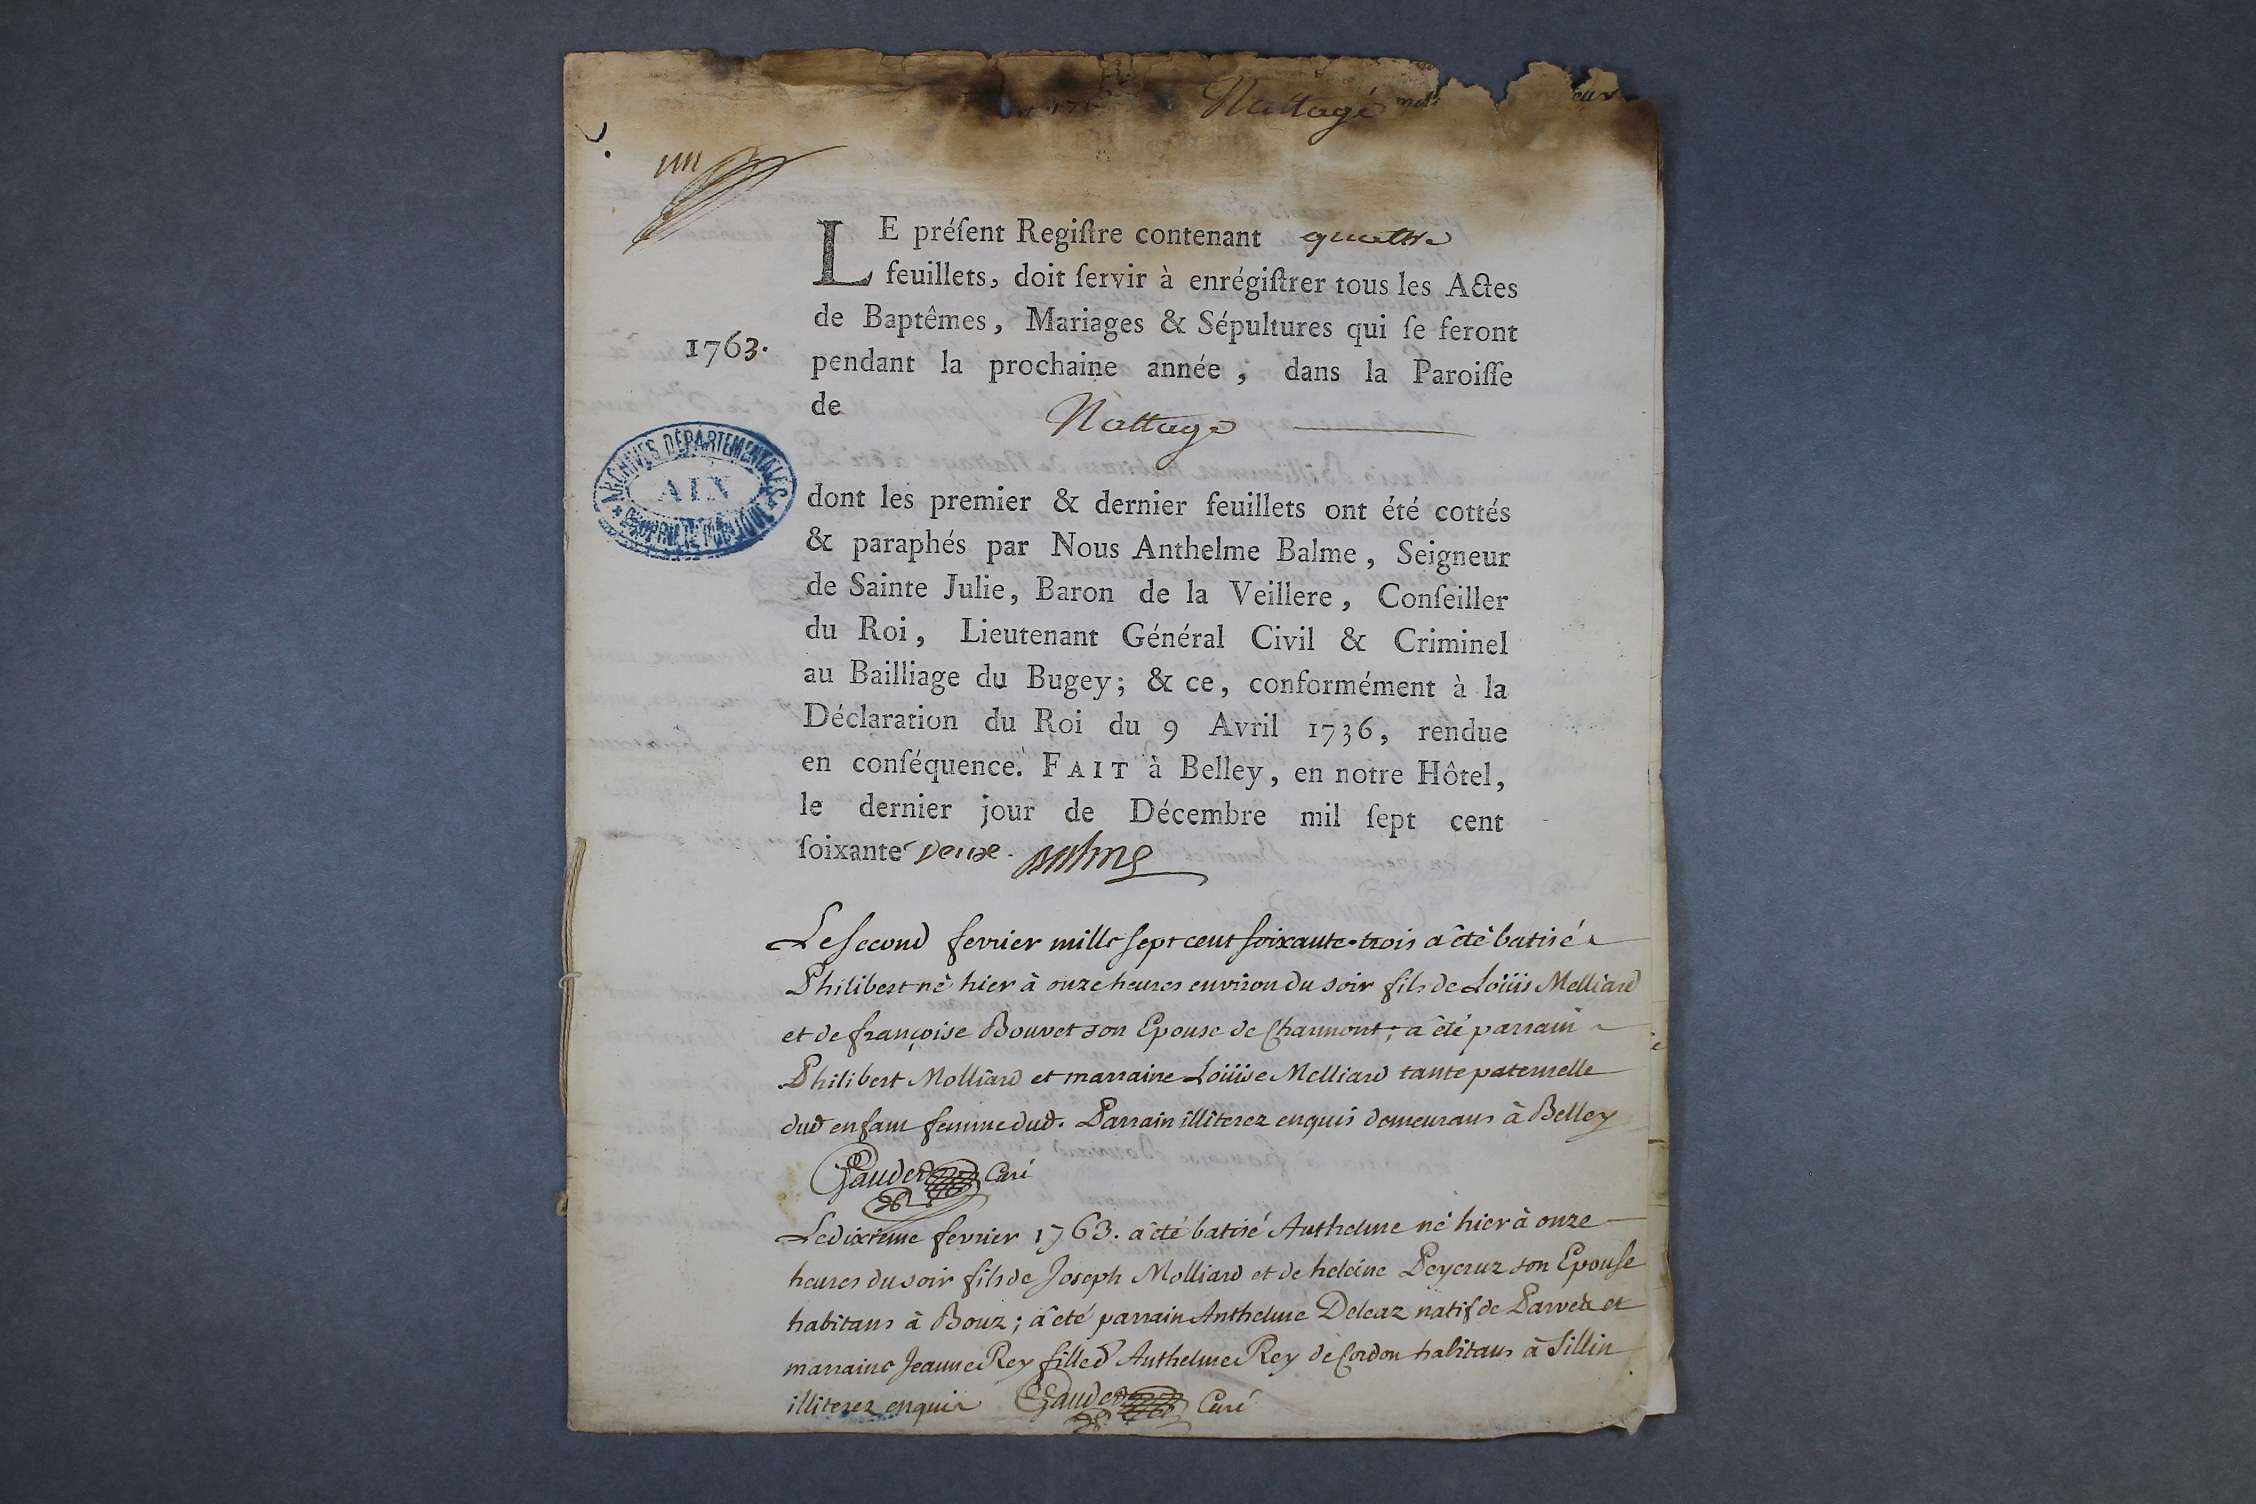 Nattage
1763.
ARCHIVES DÉPARTEMENTALES
AIN
PROPRIÉTÉ PUBLIQUE
LE préſent Regiſtre contenant quattre
feuillets, doit ſervir à enrégiſtrer tous les Actes
de Baptêmes, Mariages & Sépultures qui ſe feront
pendant la prochaine année, dans la Paroiſſe
de Nattage
dont les premier & dernier feuillets ont été cottés
& paraphés par Nous Anthelme Balme, Seigneur
de Sainte Julie, Baron de la Veillere, Conſeiller
du Roi, Lieutenant Général Civil & Criminel
au Bailliage du Bugey; & ce, conformément à la
Déclaration du Roi du 9 Avril 1736, rendue
en conſéquence. FAIT à Belley, en notre Hôtel,
le dernier jour de Décembre mil ſept cent
ſoixante deux. Balme
Le second fevrier mille sept cent soixante-trois a été batisé
Philibert né hier à onze heures environ du soir fils de Loüis Molliard
et de françoise Bouvet son Epouse de Charmont; a été parrain
Philibert Molliard et marraine Loüise Molliard tante paternelle
dud enfant femme dud. Parrain illiterez enquis demeurans à Belley
Gauder Curé
Le dixieme fevrier 1763. a été batisé Anthelme né hier à onze
heures du soir fils de Joseph Molliard et de heleine Peycruz son Epouse
habitans à Bouz; a été parrain Anthelme Deleaz natif de Parves et
marraine Jeanne Rey fille d'Anthelme Rey de Cordon habitans à Sillin
illiterez enquis Gauder Curé